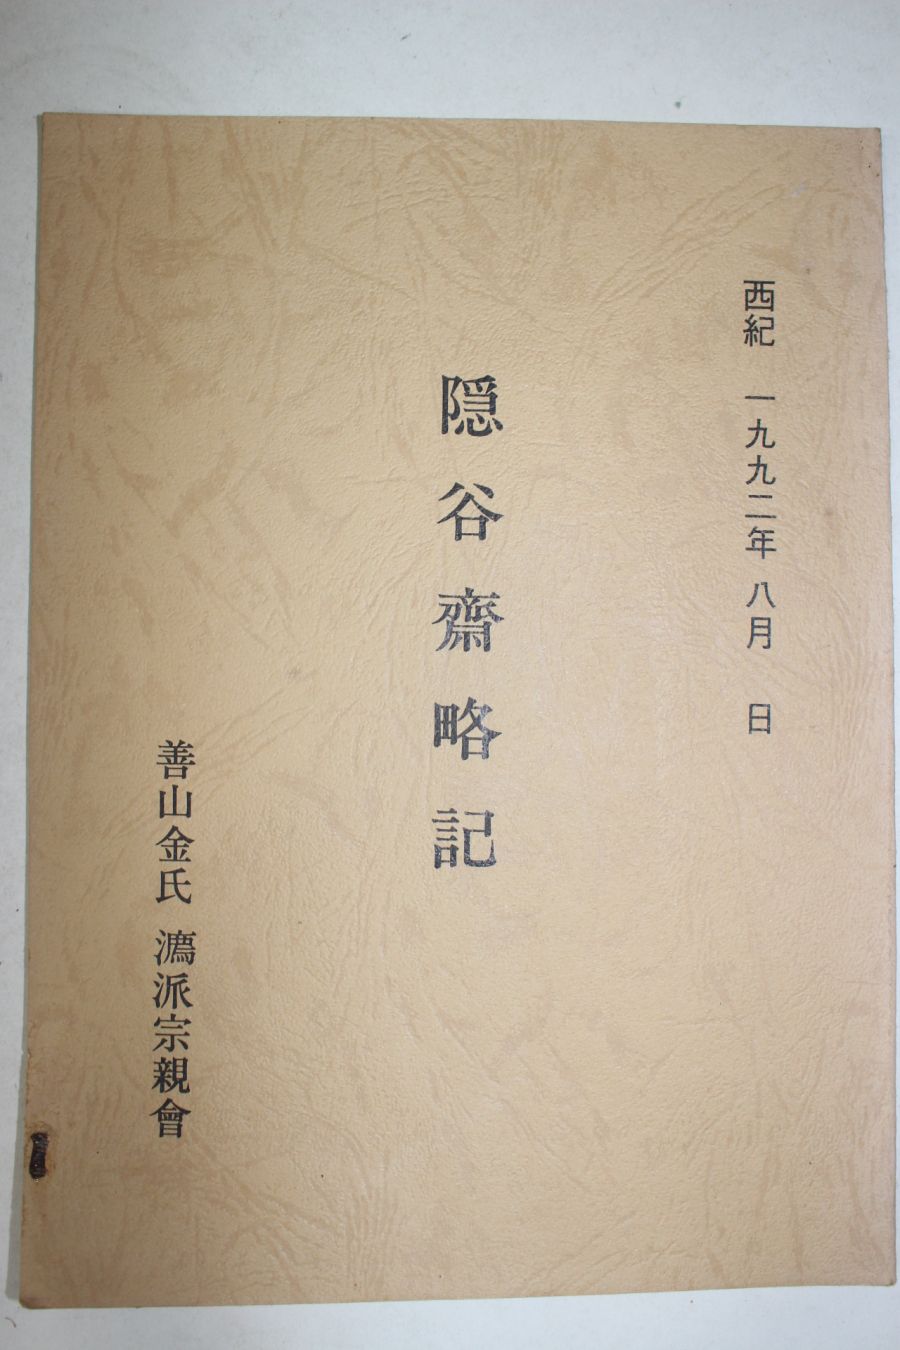 西紀 一九九二年 八月 日
隠谷齋略記
善山金氏 派宗親會